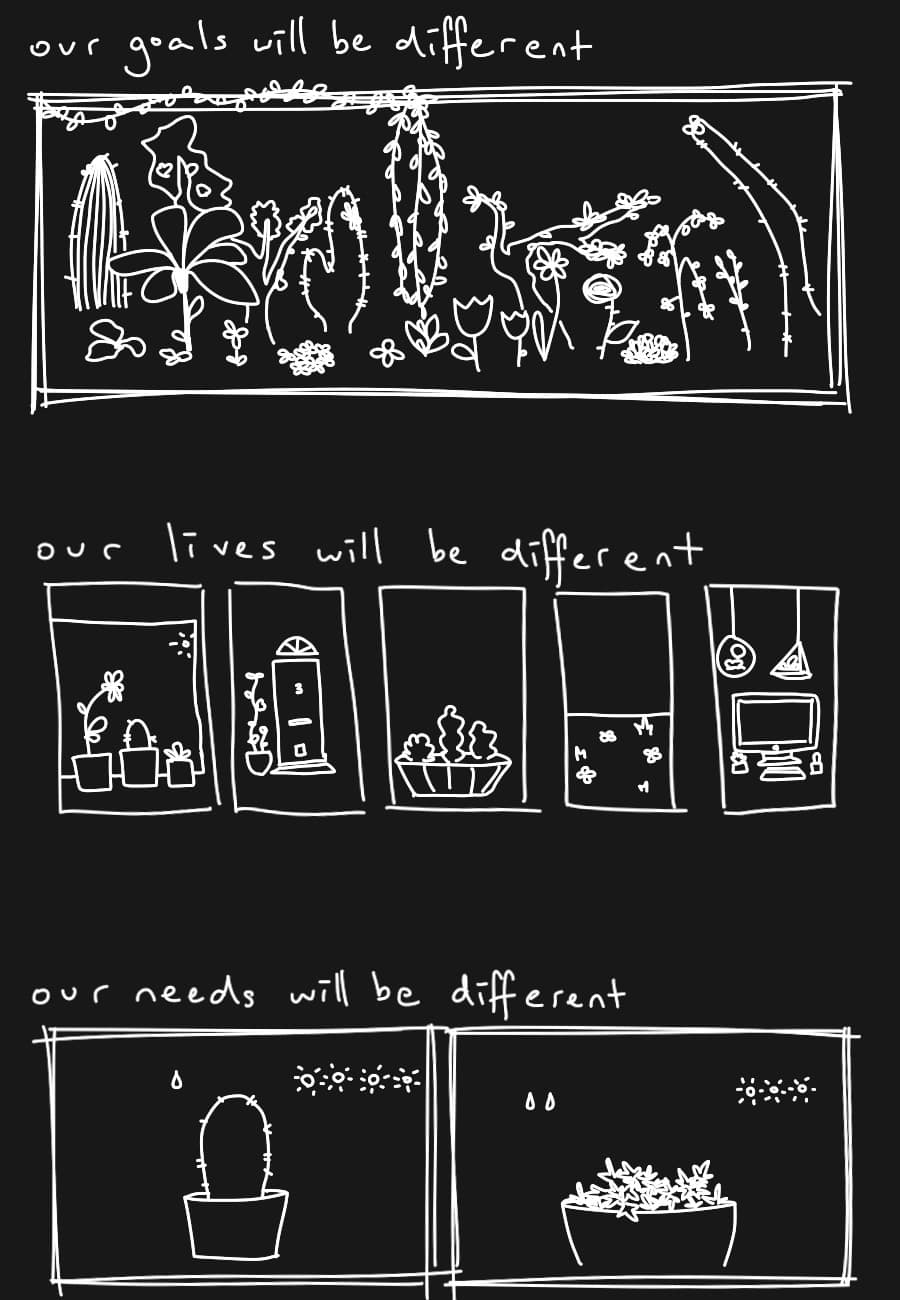 our goals will be different
our lives will be different
3
our needs will be different